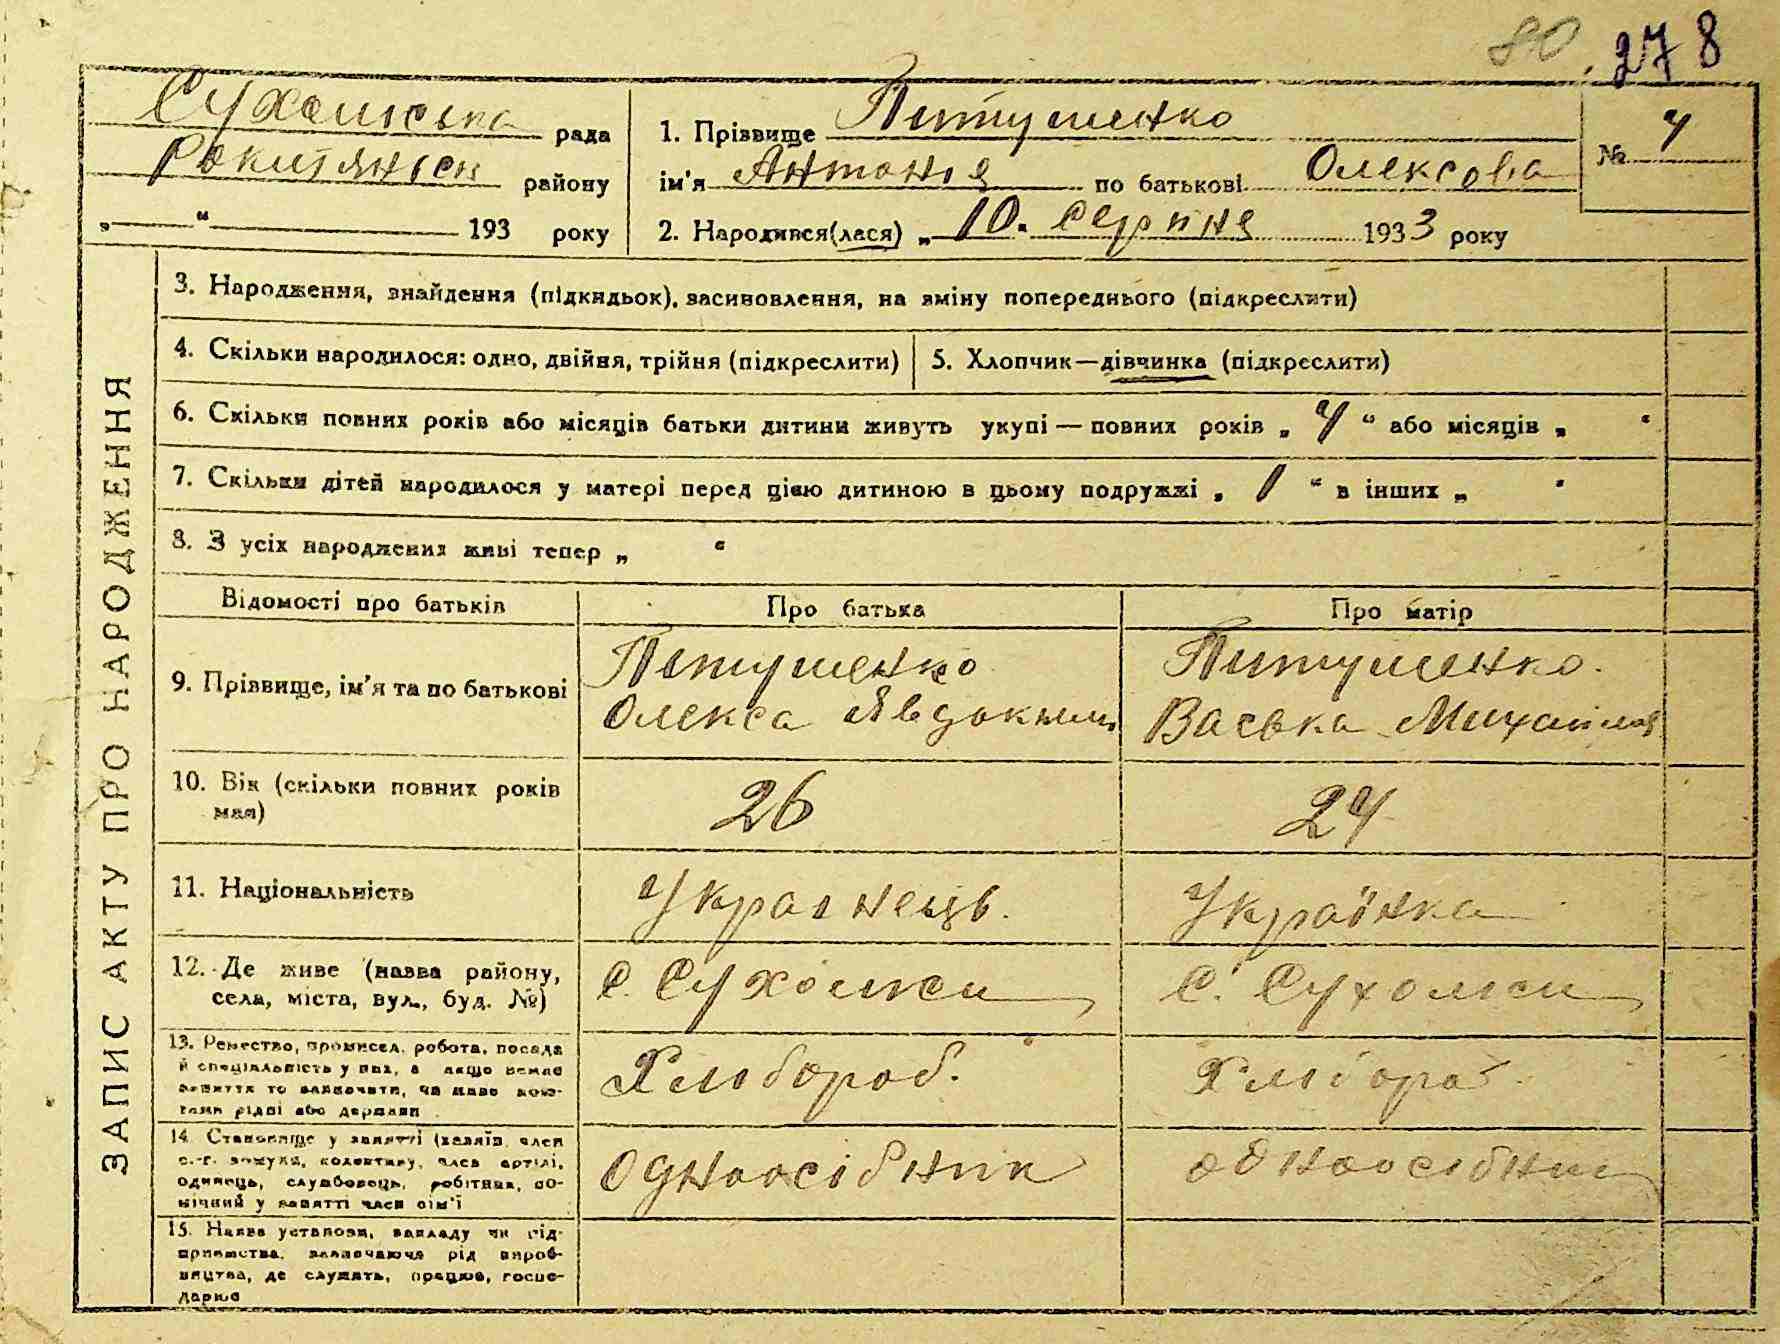 80 278
Сухолиська рада
Рокитянськ району
„ “ 193 року
1. Прізвище Питушенко
ім'я Антонія по батькові Олексова
№ 4
2. Народився(лася) „ 10. серпня 1933 року
ЗАПИС АКТУ ПРО НАРОДЖЕННЯ
3. Народження, знайдення (підкидьок), засиновлення, на зміну попереднього (підкреслити)
4. Скільки народилося: одно, двійня, трійня (підкреслити)
5. Хлопчик—дівчинка (підкреслити)
6. Скільки повних років або місяців батьки дитини живуть укупі — повних років „ 4 “ або місяців „ “
7. Скільки дітей народилося у матері перед цією дитиною в цьому подружжі „ 1 “ в інших „ “
8. З усіх народжених живі тепер „ “
Відомості про батьків Про батька Про матір
9. Прізвище, ім'я та по батькові
Питушенко
Олекса Явдоким
Питушенко.
Васька Михайлов
10. Вік (скільки повних років
мав)
26
24
11. Національність
Украінець.
Українка
12. Де живе (назва району,
села, міста, вул., буд. №)
С. Сухолиси
С. Сухолиси
13. Ремество, промисел, робота, посада
й спеціяльність у них, а якщо немає
заняття то зазначати, чи живе кош-
тами рідні або держави
Хлібороб.
Хлібороб.
14. Становище у занятті (хазяїн, член
с.-г. комуни, колективу, член артілі,
одинець, службовець, робітник, по-
мічний у занятті член сім'ї
Одноосібник
одноосібниц
15. Назва установи, закладу чи під-
приємства, зазначаючи рід вироб-
ництва, де служать, працює, госпо-
дарює